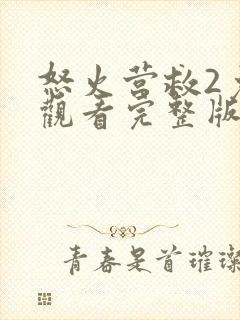 怒火营救2
觀看完整版
青春是首璀璨